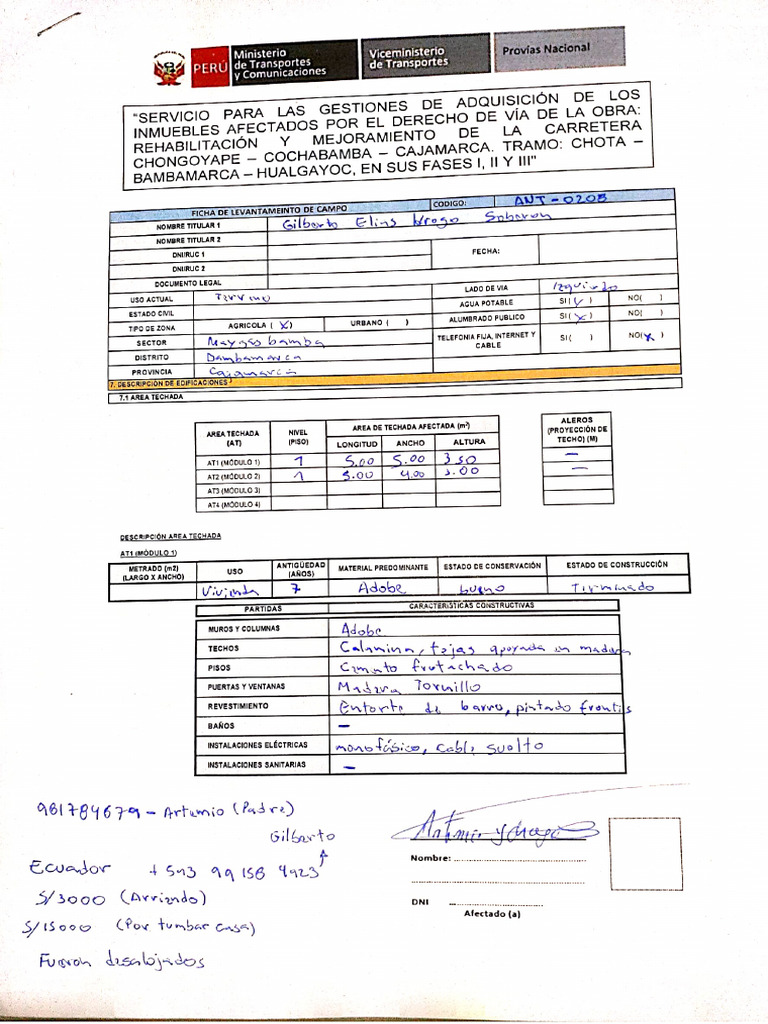 PERÚ
Ministerio de Transportes y Comunicaciones
Viceministerio de Transportes
Provías Nacional
"SERVICIO PARA LAS GESTIONES DE ADQUISICIÓN DE LOS
INMUEBLES AFECTADOS POR EL DERECHO DE VÍA DE LA OBRA:
REHABILITACIÓN Y MEJORAMIENTO DE LA CARRETERA
CHONGOYAPE – COCHABAMBA – CAJAMARCA. TRAMO: CHOTA –
BAMBAMARCA – HUALGAYOC, EN SUS FASES I, II Y III"
FICHA DE LEVANTAMEINTO DE CAMPO CODIGO: ANT-0208
NOMBRE TITULAR 1 Gilberto Elias
NOMBRE TITULAR 2
DNI/RUC 1 FECHA:
DNI/RUC 2
DOCUMENTO LEGAL
USO ACTUAL Terreno LADO DE VIA Izquierdo
ESTADO CIVIL AGUA POTABLE SI ( ✓ ) NO( )
TIPO DE ZONA AGRICOLA ( X ) URBANO ( ) ALUMBRADO PUBLICO SI ( X ) NO( )
SECTOR Maygasbamba TELEFONIA FIJA, INTERNET Y CABLE SI ( ) NO( X )
DISTRITO Bambamarca
PROVINCIA Cajamarca
7. DESCRIPCIÓN DE EDIFICACIONES
7.1 AREA TECHADA
AREA TECHADA (AT) NIVEL (PISO) AREA DE TECHADA AFECTADA (m²) ALEROS (PROYECCIÓN DE TECHO) (M)
LONGITUD ANCHO ALTURA
AT1 (MÓDULO 1) 1 5.00 5.00 3.50 –
AT2 (MÓDULO 2) 1 5.00 4.00 3.00 –
AT3 (MÓDULO 3)
AT4 (MÓDULO 4)
DESCRIPCIÓN AREA TECHADA
AT1 (MÓDULO 1)
METRADO (m2) (LARGO X ANCHO) USO ANTIGÜEDAD (AÑOS) MATERIAL PREDOMINANTE ESTADO DE CONSERVACIÓN ESTADO DE CONSTRUCCIÓN
Vivienda 7 Adobe bueno Terminado
PARTIDAS CARACTERÍSTICAS CONSTRUCTIVAS
MUROS Y COLUMNAS Adobe
TECHOS Calamina, tejas apoyada en madera
PISOS Cemento frutachado
PUERTAS Y VENTANAS Madera Tornillo
REVESTIMIENTO Entorte de barro, pintado frontis
BAÑOS –
INSTALACIONES ELÉCTRICAS monofásico, cable suelto
INSTALACIONES SANITARIAS –
981784679 – Artemio (Padre)
Gilberto
Ecuador +593 99158 4923
S/3000 (Arriendo)
S/15000 (Por tumbar casa)
Fueron desalojados
Nombre:
DNI
Afectado (a)